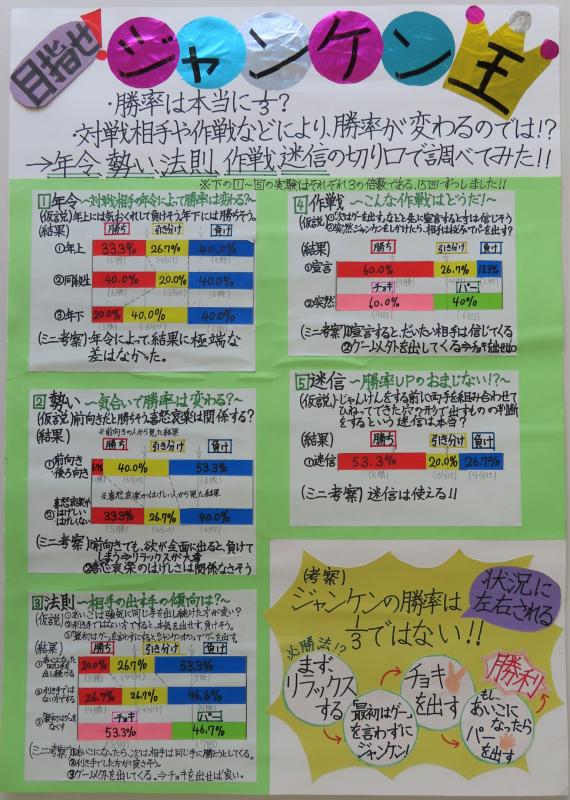 目指せ!
ジャンケン王
・勝率は本当に1/3?
・対戦相手や作戦などにより、勝率が変わるのでは!?
→年令、勢い、法則、作戦、迷信の切り口で調べてみた!!
※下の1~5の実験はそれぞれ3の倍数である、15回ずつしました!!
1年令~対戦相手の年令によって勝率は変わる?~
(仮説)年上には気おくれして負けそう。年下には勝ちそう。
(結果) 勝ち 引き分け 負け
①年上 33.3% 26.7% 40.0%
②同級姓 40.0% 20.0% 40.0%
③年下 20.0% 40.0% 40.0%
(ミニ考察)年令によって、結果に極端な
差はなかった。
2勢い~気合いで勝率は変わる?~
(仮説)前向きだと勝ちそう。喜怒哀楽は関係する?
(結果) ※前向きの人から見た結果
勝ち 引き分け 負け
①前向き
後ろ向き 40.0% 53.3%
※喜怒哀楽がはげしい人から見た結果
②喜怒哀楽が
はげしい
はげしくない 33.3% 26.7% 40.0%
(ミニ考察)①前向きでも、欲が全面に出ると、負けて
しまう⇒リラックスが大事
②喜怒哀楽のはげしさは関係なさそう
3法則~相手の出す手の傾向は?~
(仮説)①あいこは強気に同じ手を出し続けた方が良い?
②利き手ではない方ですると、本気を出せず、負けそう。
(結果) 勝ち 引き分け 負け
①あいこになったら
同じ手を
出し続ける 20.0% 26.7% 53.3%
②利き手では
ない方でする 26.7% 26.7% 46.6%
チョキ パー
③最初はグーを
なくす 53.3% 46.7%
(ミニ考察)①あいこになったら、次は、相手は同じ手に勝とうとしてくる。
②利き手でした方が良さそう。
③グー以外を出してくる。⇒チョキを出せば良い。
4作戦~こんな作戦はどうだ!~
(仮説)①次はグーを出す、などと先に宣言するとすは信じそう
②突然ジャンケンをしかけたら、相手は焦ってパーを出す?
(結果) 勝ち 引き分け 負け
①宣言 60.0% 26.7% 13.3%
チョキ パー
②突然 60.0% 40%
(ミニ考察)①宣言すると、だいたい相手は信じてくる
②グー以外を出してくる⇒チョキを出せば◎
5迷信~勝率UPのおまじない!?~
(仮説)じゃんけんをする前に両手を組み合わせて
ひねってできた穴の形で出すものの判断
をするという迷信は本当?
(結果) 勝ち 引き分け 負け
①迷信 53.3% 20.0% 26.7%
(8勝) (3分け) (4敗)
(ミニ考察)迷信は使える!!
(考察)
ジャンケンの勝率は
1/3ではない!!
状況に
左右される
必勝法!?
まず、
リラックス
する
最初はグー
を言わずに
ジャンケン!
チョキ
を出す
もし、
あいこに
なったら
パー
を出す
勝利